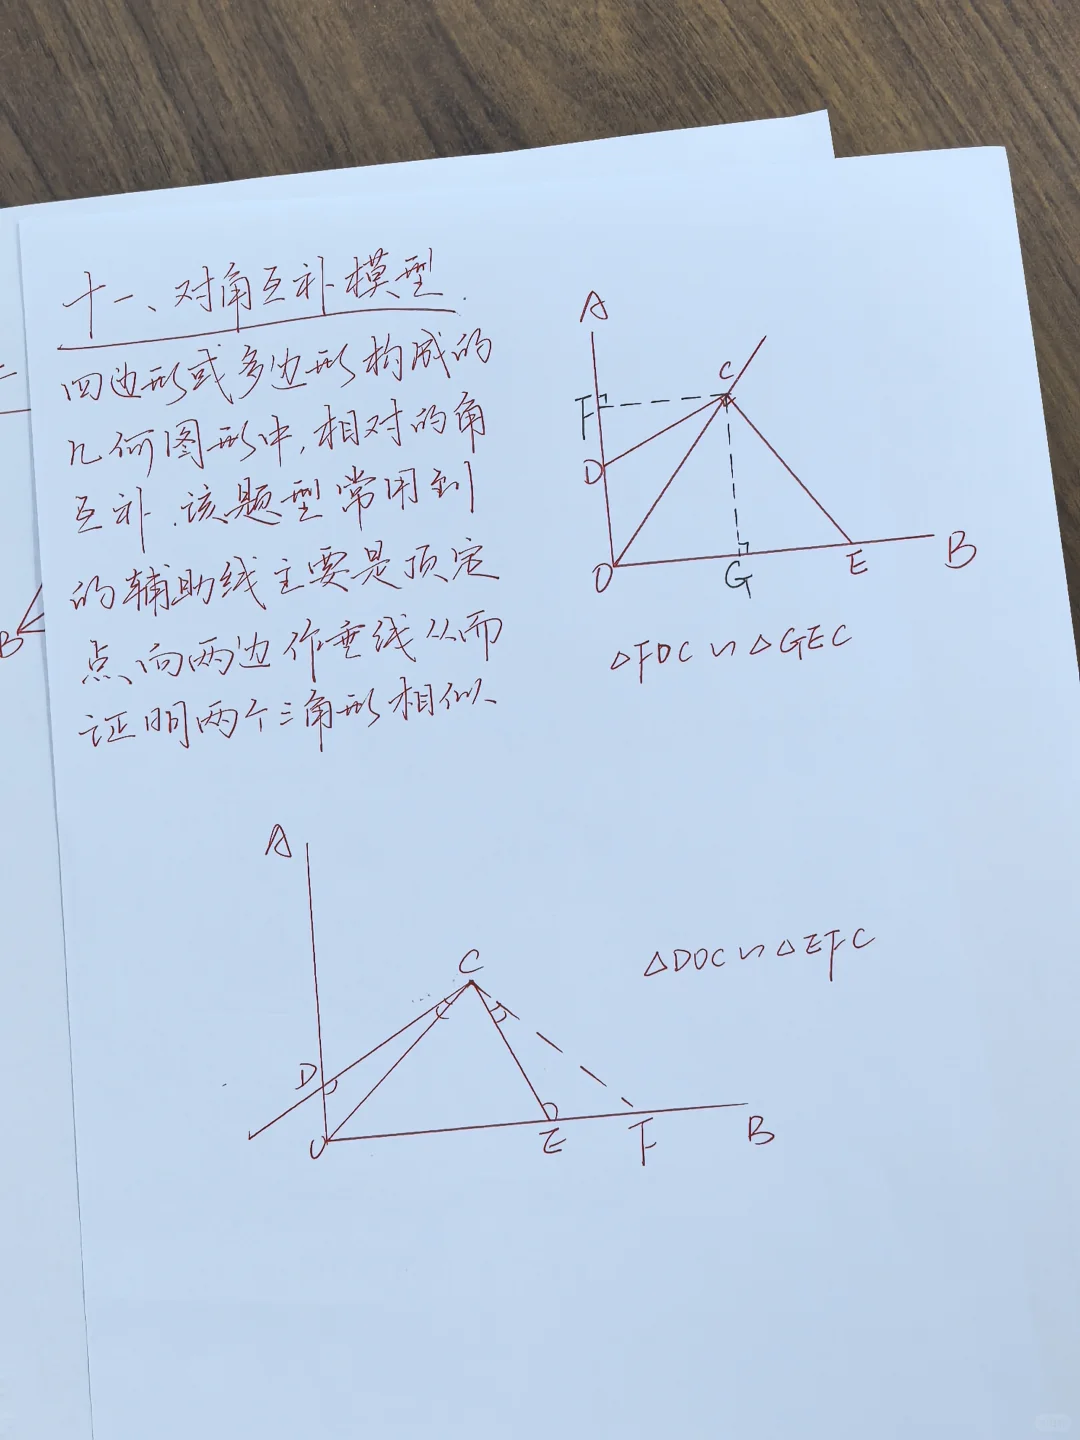 十一、对角互补模型.
四边形或多边形构成的
几何图形中,相对的角
互补.该题型常用到
的辅助线主要是顶定
点向两边作垂线从而
证明两个三角形相似、
A
C
F
D
O
G
E
B
△FDC∽△GEC
A
C
△DOC∽△EFC
D
O
E
F
B
B